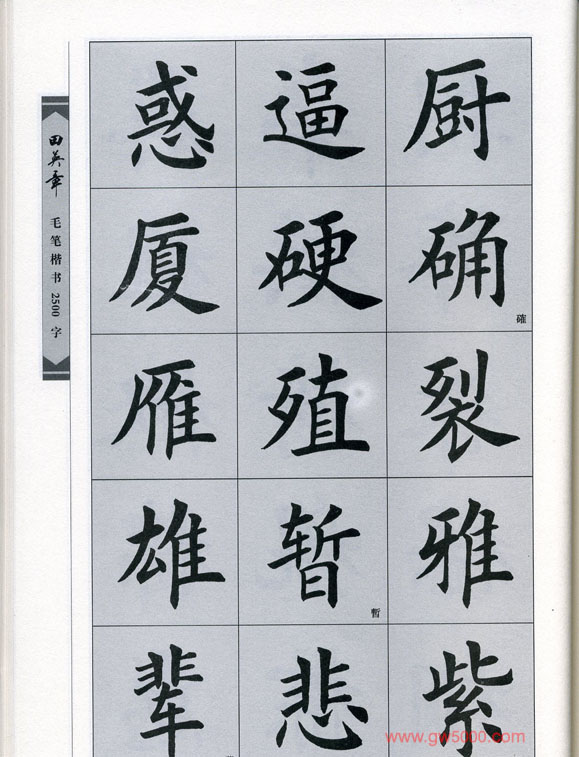 田英章 毛笔楷书 2500 字
惑 逼 厨
厦 硬 确
確
雁 殖 裂
雄 暂 雅
暫
辈 悲 紫
www.gw5000.com